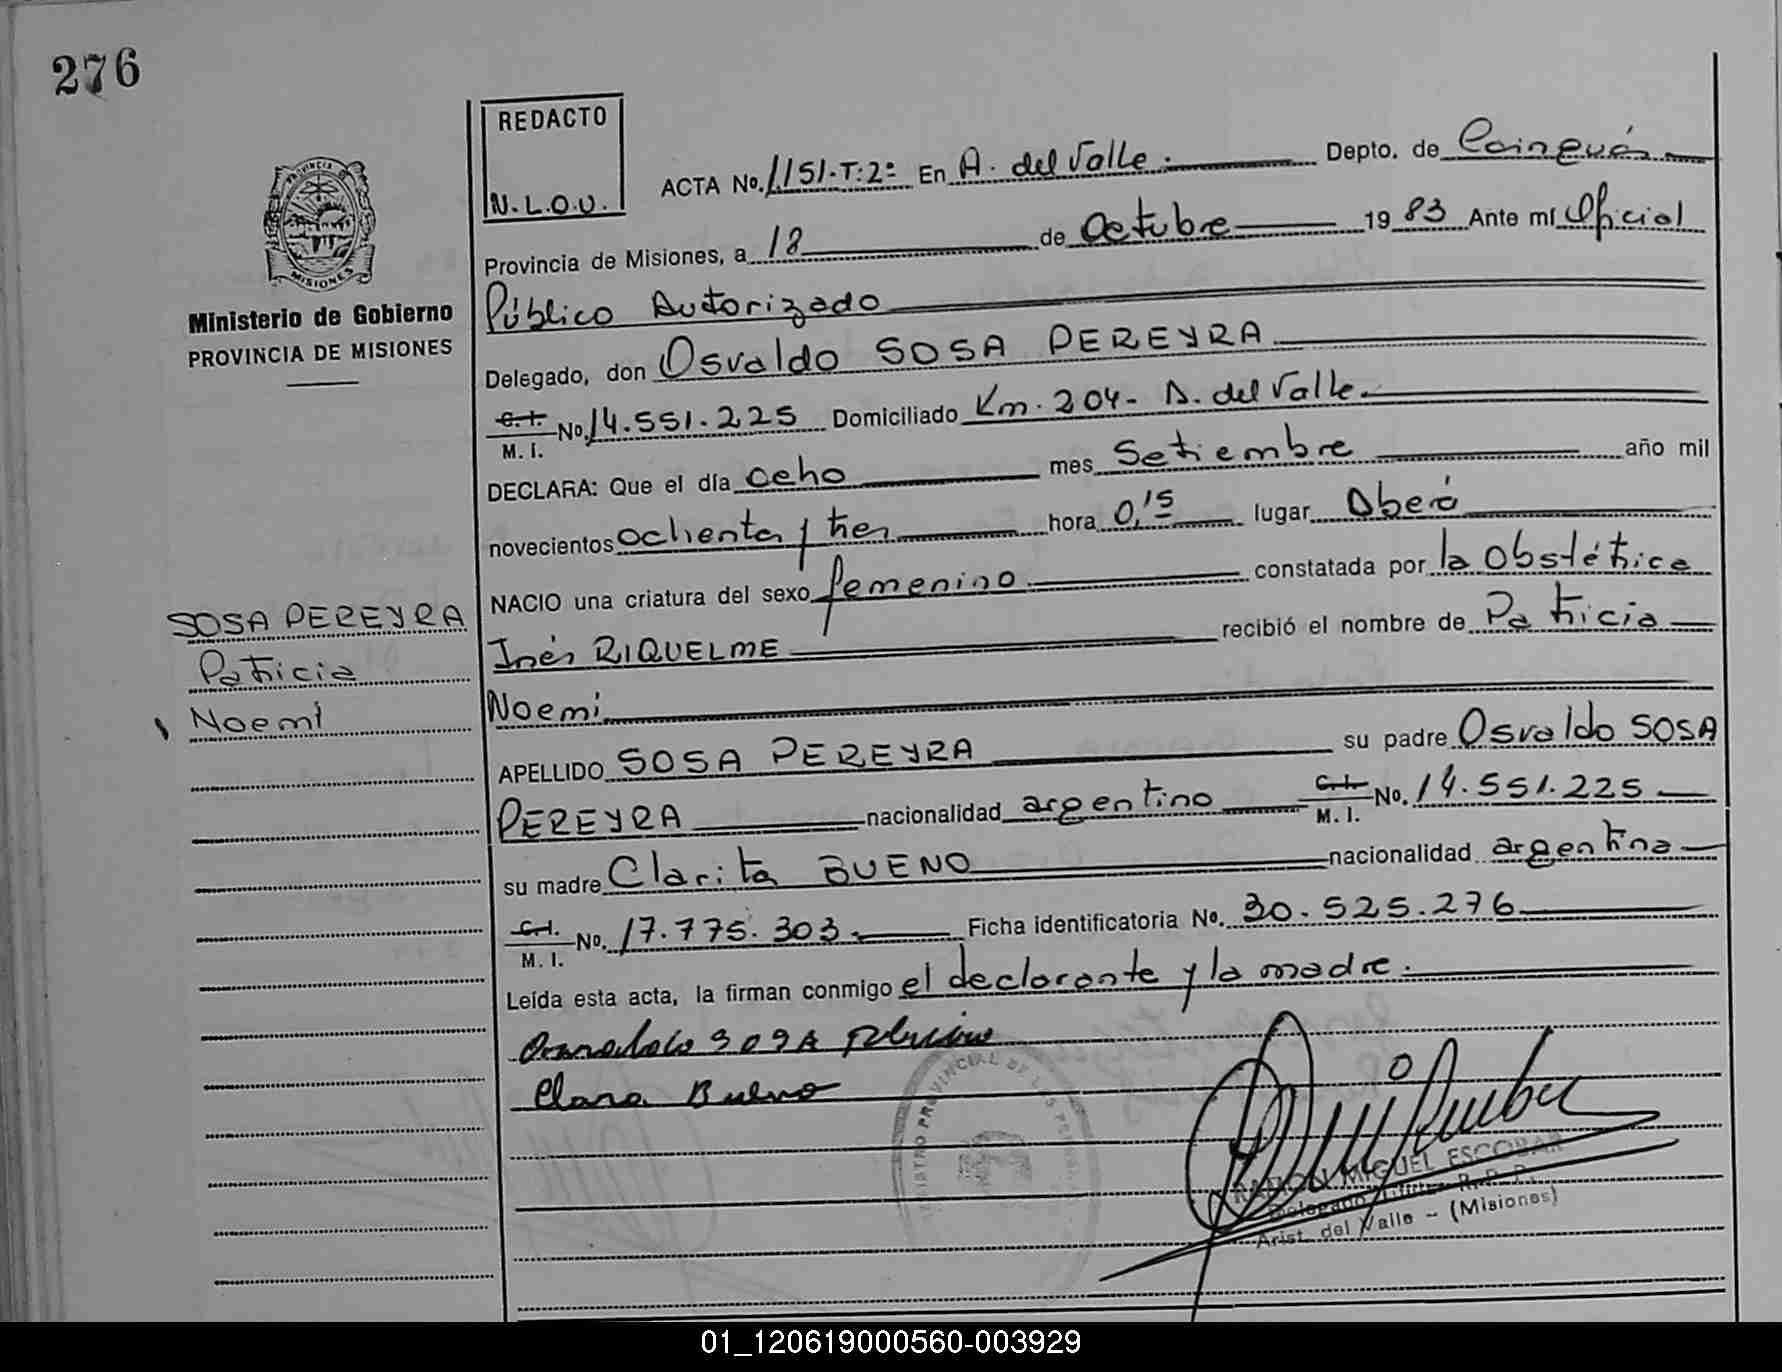 276
REDACTO
N.L.O.U.
ACTA No. 1151-T:2º En A. del Valle. Depto. de Cainguás
Provincia de Misiones, a 18 de Octubre 1983 Ante mí Oficial
Público Autorizado
PROVINCIA DE
MISIONES
Ministerio de Gobierno
PROVINCIA DE MISIONES
Delegado, don Osvaldo SOSA PEREYRA
C.I. No. 14.551.225 Domiciliado Km. 204- A. del Valle.
M. I.
DECLARA: Que el día ocho mes Setiembre año mil
novecientos ochenta y tres hora 0,15 lugar Oberá
NACIO una criatura del sexo femenino constatada por la Obstétrica
Inés RIQUELME recibió el nombre de Patricia
Noemi
SOSA PEREYRA
Patricia
Noemí
APELLIDO SOSA PEREYRA su padre Osvaldo SOSA
PEREYRA nacionalidad argentino C.I. No. 14.551.225
M. I.
su madre Clarita BUENO nacionalidad argentina
C.I. No. 17.775.303 Ficha identificatoria No. 30.525.276
M. I.
Leída esta acta, la firman conmigo el declarante y la madre.
SOSA
Clara Bueno
REGISTRO PROVINCIAL DE LAS
RAMON MIGUEL ESCOBAR
Delegado Titular R.P.P.
Arist. del Valle - (Misiones)
01_120619000560-003929